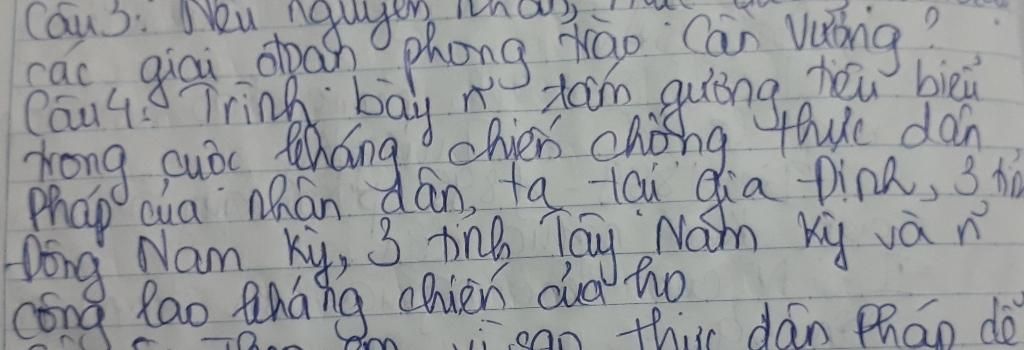 Câu 3: Nêu nguyên nhân,
các giai đoạn phong trào Cần Vương?
Câu 4: Trình bày n~ tấm gương tiêu biểu
trong cuộc kháng chiến chống thực dân
Pháp của nhân dân ta tại gia Định, 3 tỉn
Đông Nam Kỳ, 3 tỉnh Tây Nam Kỳ và n~
công lao kháng chiến của họ
vì sao thực dân Pháp để